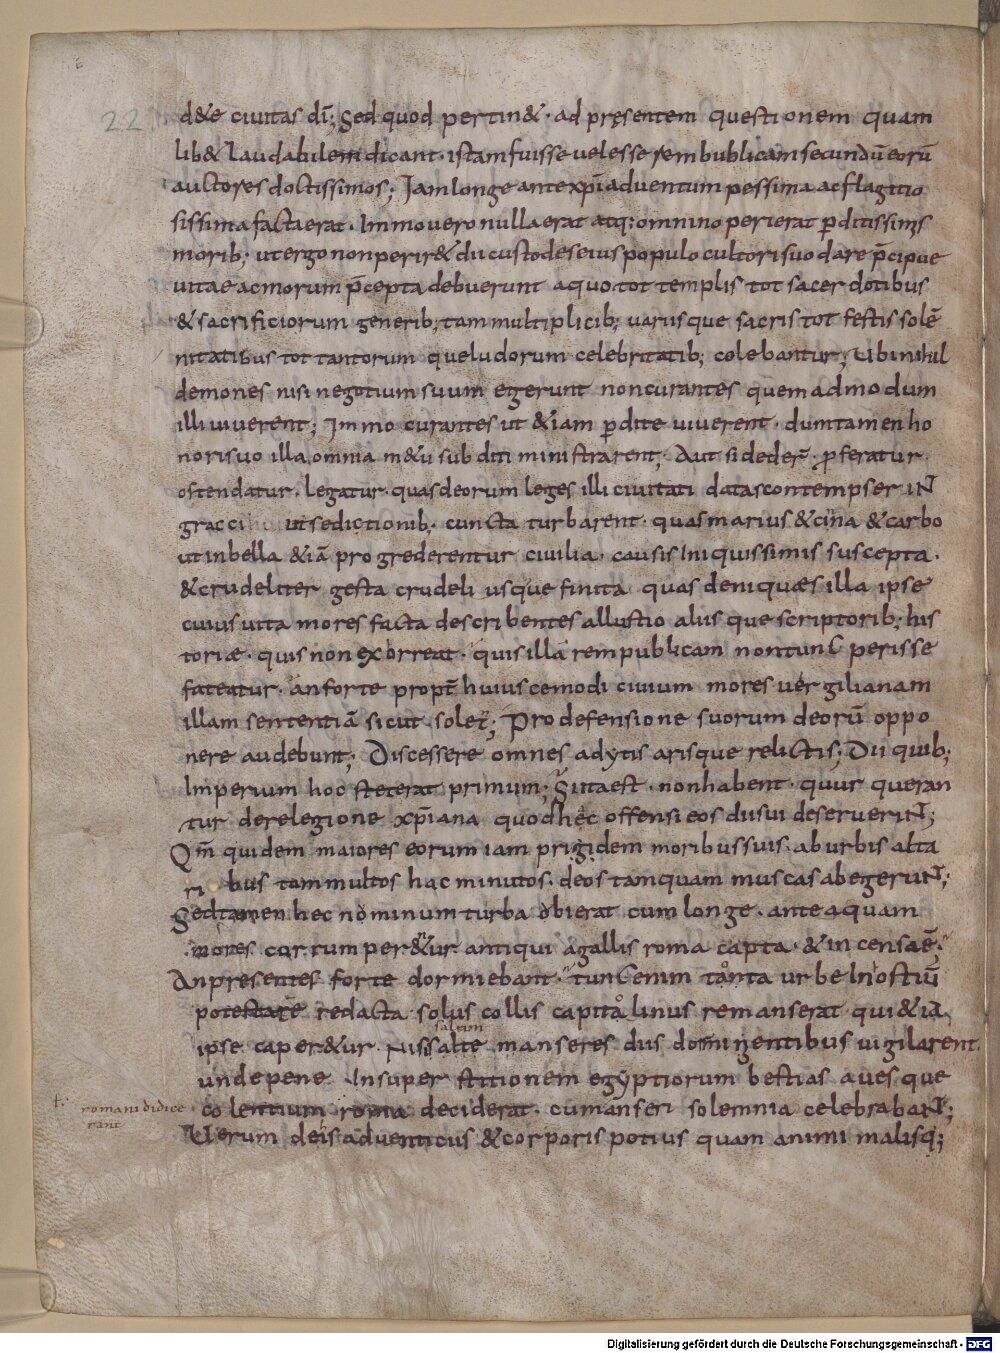 22.
d&e ciuitas dī; Sed quod pertin& · ad pręsentem questionem quam
lib& laudabilem dicant · istam fuisse uel esse rem bublicam secundū eorū
auctores doctissimos; Jam longe ante xp̄i aduentum pessima ac flagitio
sissima facta erat · Immo uero nulla erat atq; omnino perierat p̄ditissimis
morib; ut ergo non perir& dii custodes eius populo cultori suo dare p̄cipue
uitae ac morum p̄cepta debuerunt a quo tot templis tot sacerdotibus
& sacrificiorum generib; tam multiplicib; uariisque sacris tot festis solē
nitatibus tot tantorum que ludorum celebritatib; colebantur; Ubi nihil
demones nisi negotium suum egerunt non curantes quem ad modum
illi uiuerent; Immo curantes ut &iam p̄dite uiuerent · dum tamen ho
nori suo illa omnia m&u subditi ministrarent; Aut si dedert̄ · p̄feratur
ostendatur · legatur · quas deorum leges illi ciuitati datas contempseriNT
gracci ut sedictionib · cuncta turbarent · quas marius & cina & carbo
ut in bella &iā progrederentur ciuilia · causis iniquissimis suscepta ·
& crudeliter gesta crudeli usque finita quas denique s illa ipse
cuius uita mores facta describentes allustio aliis que scriptorib; his
toriæ · quis non exorreat · quis illa rem publicam non tunc perisse
fateatur · an forte propt̄ huiuscemodi ciuium mores uergilianam
illam sententiā sicut solet̄; Pro defensione suorum deorū oppo
nere audebunt; Discessere omnes adytis arisque relictis; Dii quib;
Imperium hoc steterat primum; Si ita est · non habent · quur queran
tur de relegione xp̄iana quod hec offensi eos dii sui deserueriNT;
Qm̄ quidem maiores eorum iam prigidem moribus suis · ab urbis alta
ri bus tam multos hac minutos · deos tamquam muscas abegeruNT;
Sed tamen hec nominum turba ubi erat cum longe · ante aquam
mores corrumper&ur antiqui a gallis roma capta · & incensa ē;
An presentes forte dormiebant · tunc enim tota urbe In ostiū
potestate redacta solus collis capitolinus remanserat qui &iā
ipse caper&ur · Nisi salte manseres diis dormientibus uigilarent
saltim
unde pene · In super stitionem egyptiorum bestias aues que
colentium roma deciderat · cum anseri solemnia celebrabaNT;
ł · romani didice
rant
Uerum de is aduenticiis & corporis potius quam animi malisq;
Digitalisierung gefördert durch die Deutsche Forschungsgemeinschaft - DFG